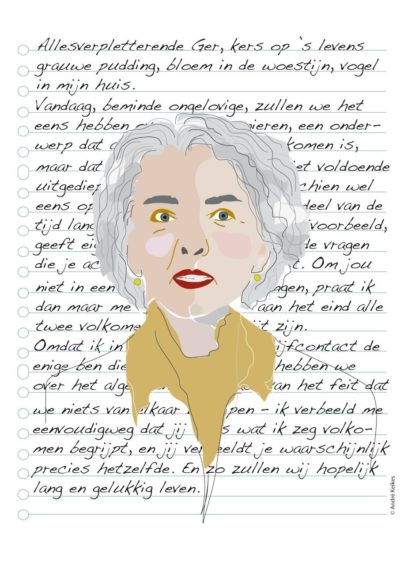 Allesverpletterende Ger, kers op 's levens
grauwe pudding, bloem in de woestijn, vogel
in mijn huis.
Vandaag, beminde ongelovige, zullen we het
eens hebben ieren, een onder-
werp dat komen is,
maar dat iet voldoende
uitgediep chien wel
eens op deel van de
tijd lang voorbeeld,
geeft de vragen
die je ac t. Om jou
niet in een gen, praat ik
dan maar me aan het eind alle
twee volkome t zijn.
Omdat ik in ijfcontact de
enige ben die hebben we
over het alge van het feit dat
we niets van elkaar pen - ik verbeeld me
eenvoudigweg dat jij s wat ik zeg volko-
men begrijpt, en jij ver eeldt je waarschijnlijk
precies hetzelfde. En zo zullen wij hopelijk
lang en gelukkig leven.
© André Kelkes